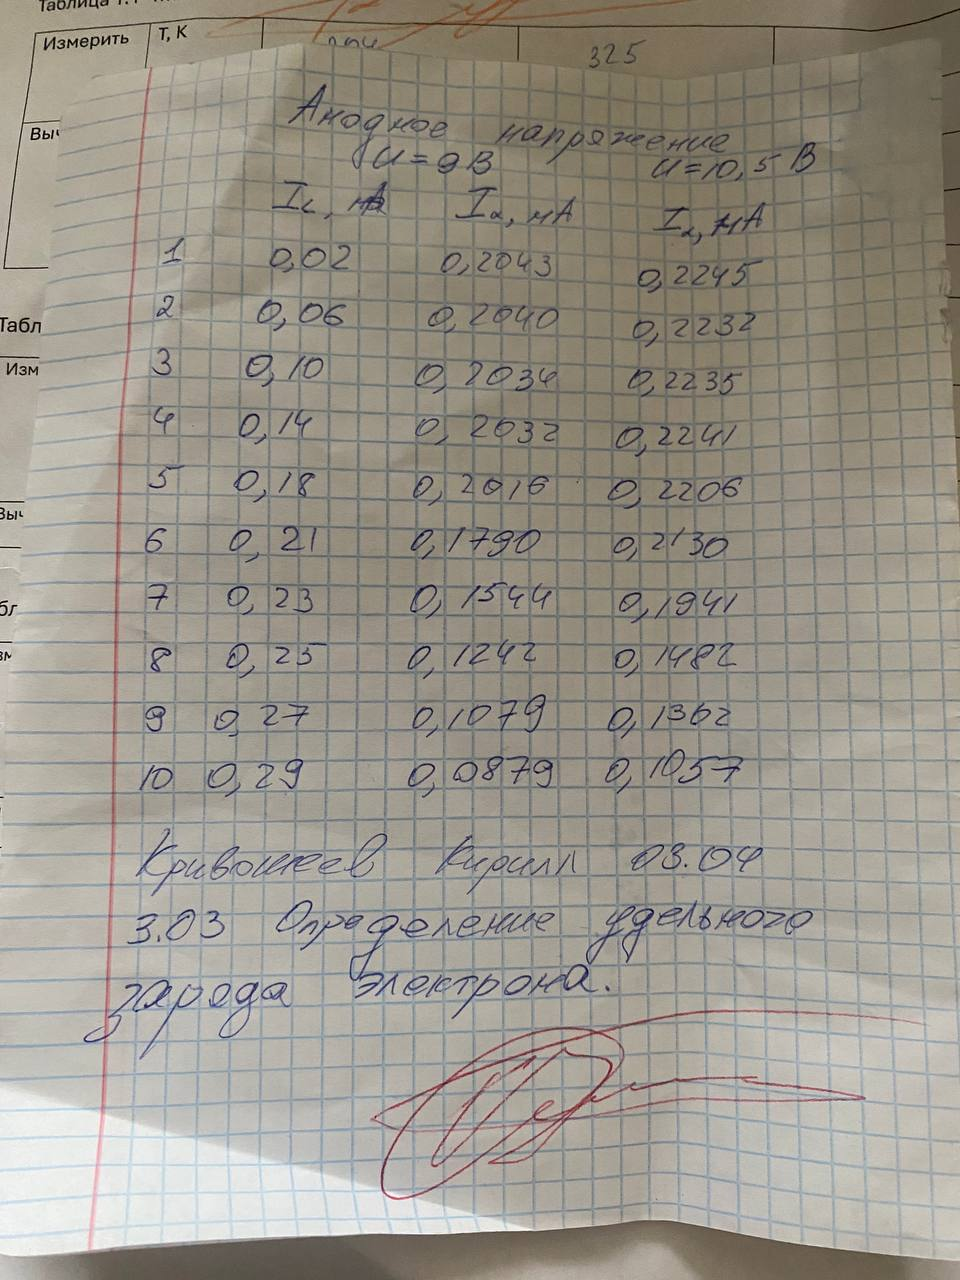 Таблица 1.1
Измерить T, К 325
Выч
Анодное напряжение
U=9В U=10,5 В
IL, А Iа, мА Iа, мА
1 0,02 0,2043 0,2245
2 0,06 0,2040 0,2232
3 0,10 0,2034 0,2235
4 0,14 0,2032 0,2241
5 0,18 0,2016 0,2206
6 0,21 0,1790 0,2130
7 0,23 0,1544 0,1941
8 0,25 0,1242 0,1482
9 0,27 0,1079 0,1362
10 0,29 0,0879 0,1057
Табл
Изм
Выч
бл
Кривошеев Кирилл 03.04
3.03 Определение удельного
заряда электрона.